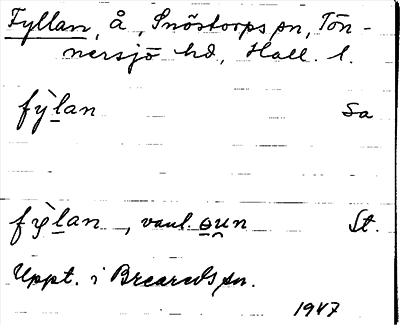 Fyllan, å, Snöstorps sn, Tön-
nersjö hd, Hall. l.
fỳlan Sa
fỳlan, vanl. ɑ̯un St.
Uppt. i Breareds sn.
1947